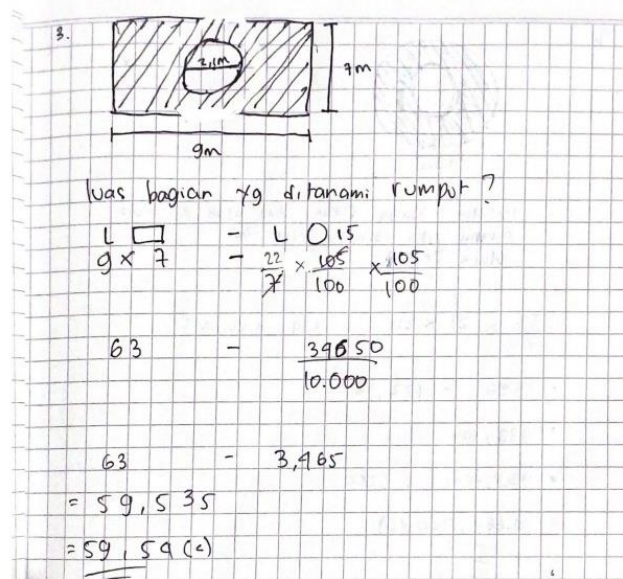 3.
2,1m
7m
9m
luas bagian yg ditanami rumput?
L □ - L ○ 15
9 x 7 - 22/7 x 105/100 x 105/100
63 - 34650/10.000
63 - 3,465
= 59,535
= 59,54 (c)